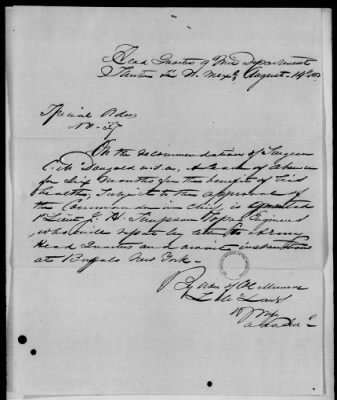 Head Quarters 9th Mil Department
Santa Fe N. Mex. August 14th
Special Orders
No. 37
On the recommendation of Surgeon
C. McDougall U.S.A. A leave of absence
for Six Months for the benefit of his
health, Subject to the approval of
the Commander in Chief, is granted
1st Lieut J. H. Simpson Topl. Engineers
who will report by letter to Army
Head Quarters and await instructions
at Buffalo New York.
By order of Col Munroe